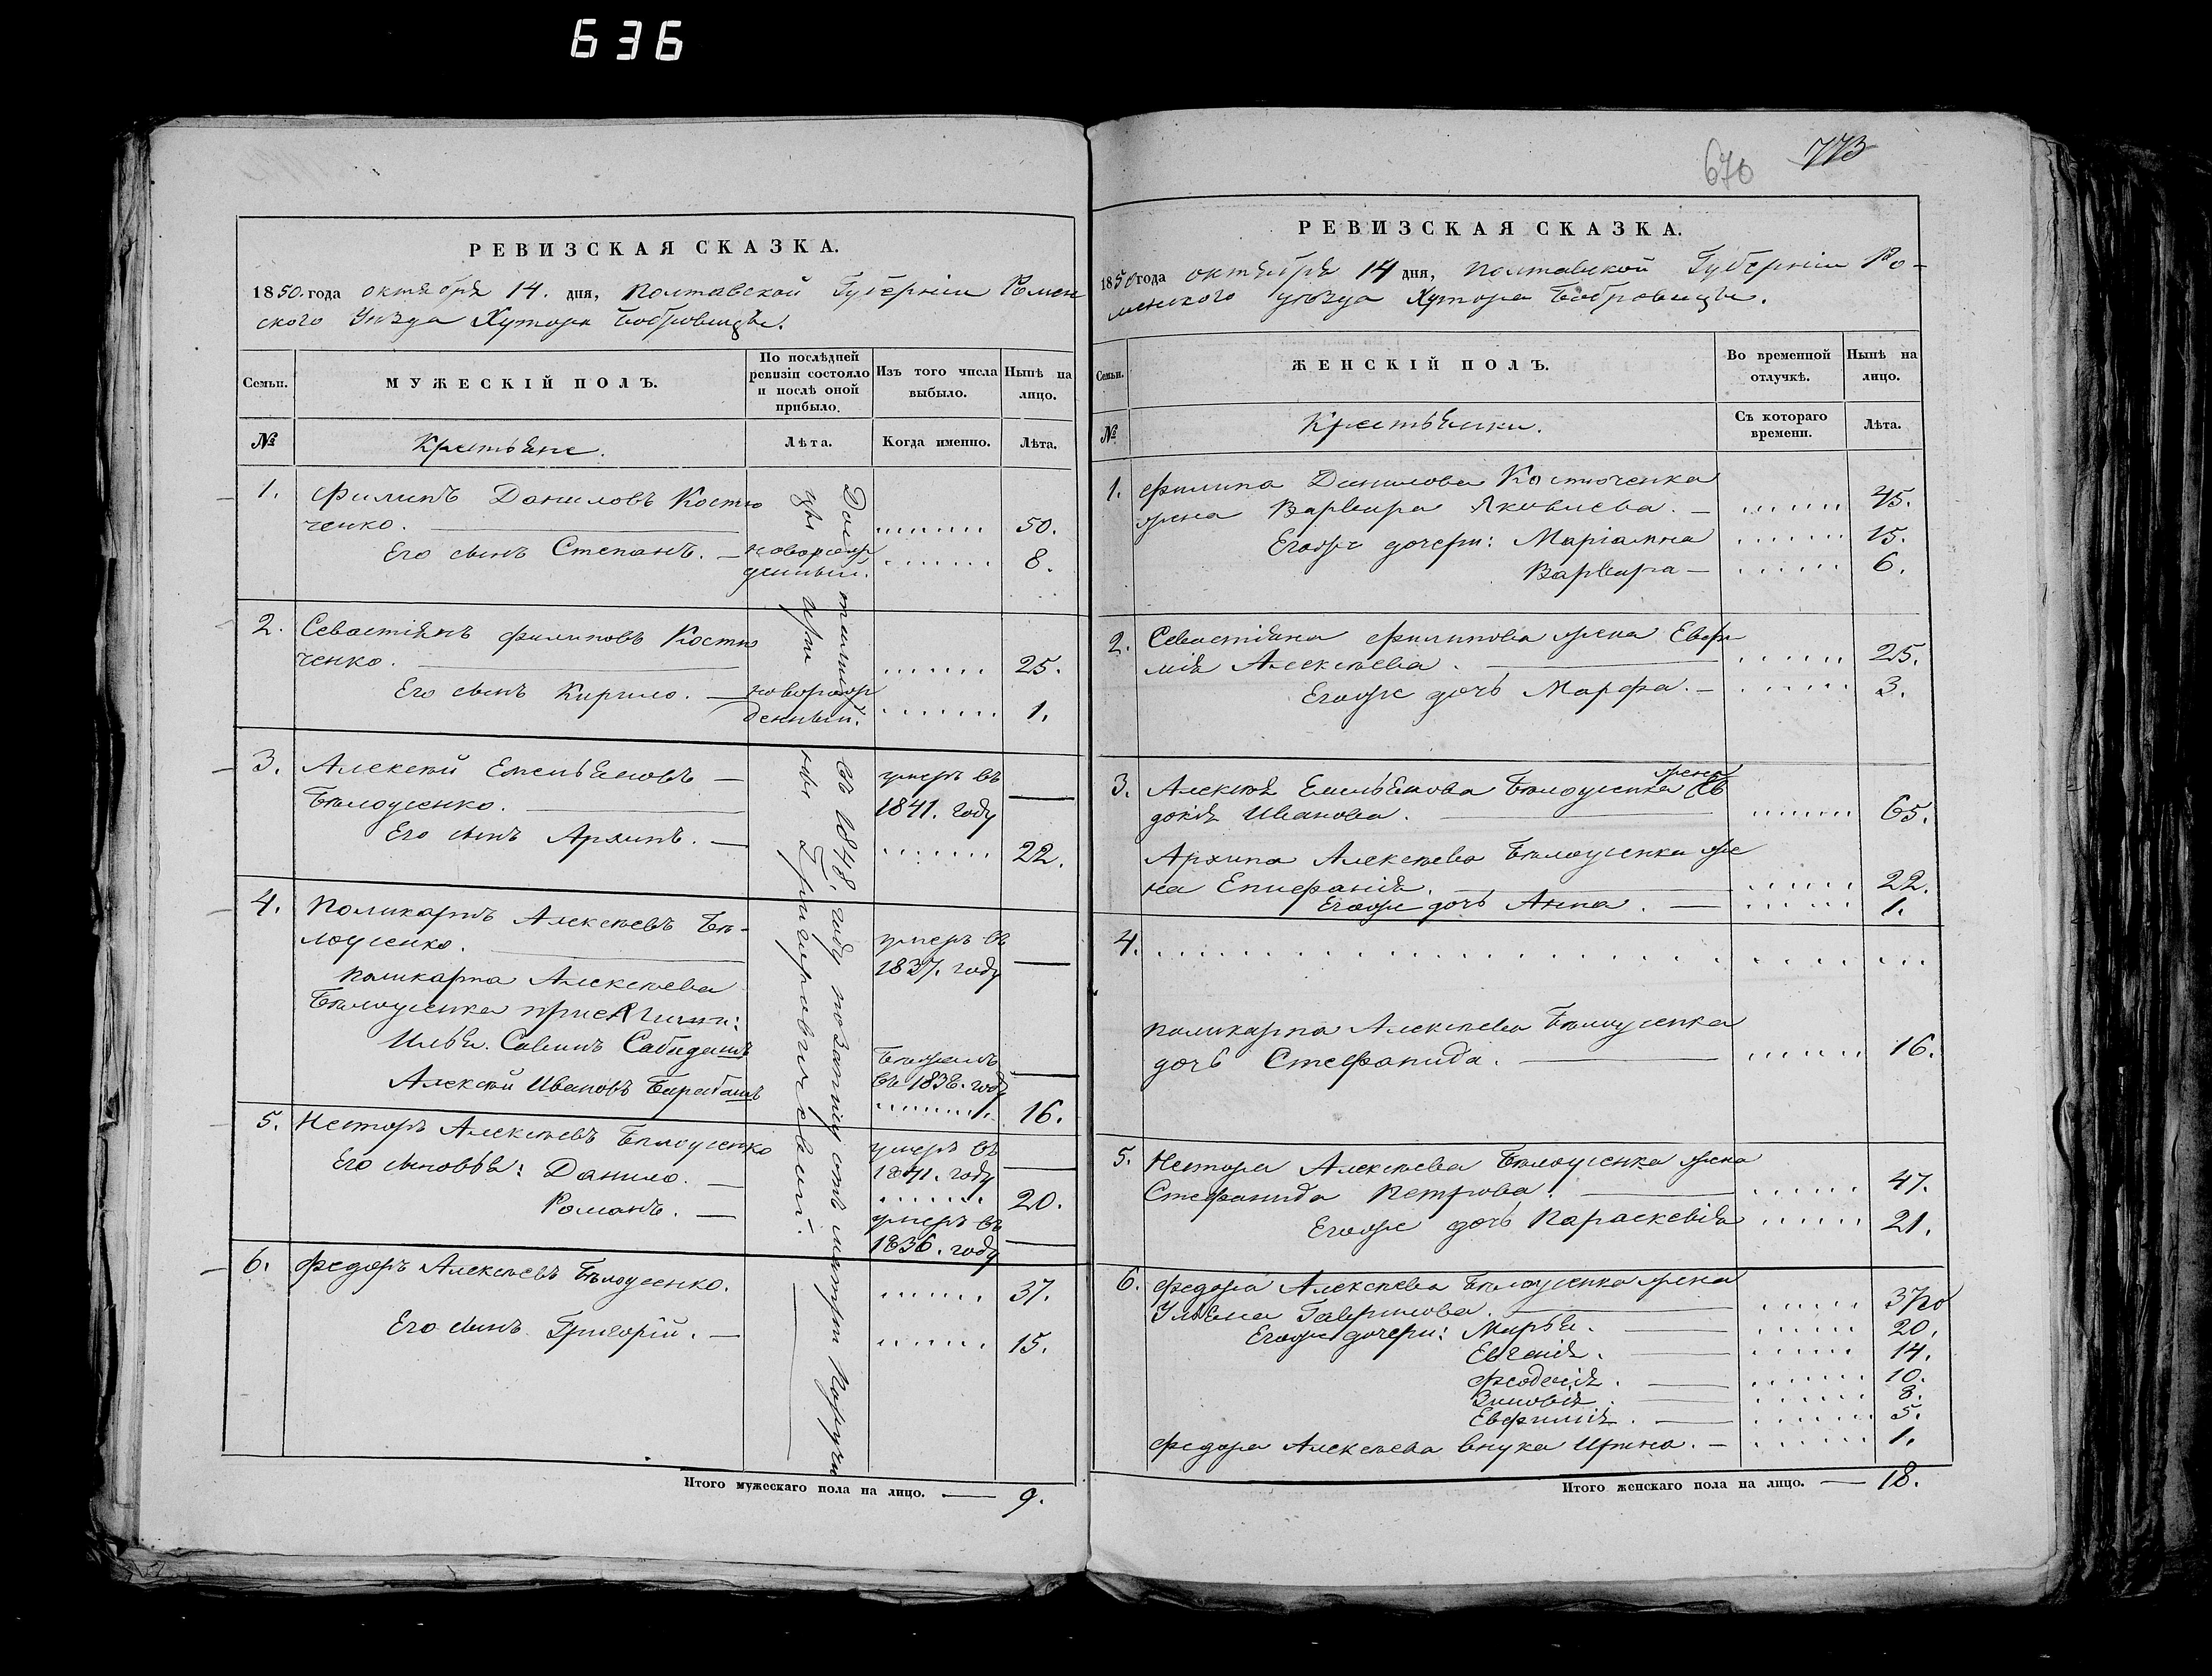 636
РЕВИЗСКАЯ СКАЗКА.
1850. года октября 14. дня, Полтавской Губерніи Ромен
ского Уезда Хутора Бобровицы.
Семьи.
МУЖЕСКІЙ ПОЛЪ.
По послѣдней ревизіи состояло и послѣ оной прибыло.
Изъ того числа выбыло.
Нынѣ на лицо.
№
Крестьяне.
Лѣта.
Когда именно.
Лѣта.
1. Филипъ Даниловъ Костю
ченко. 50.
Его сынъ Степанъ. — новорож
денный. 8.
2. Севастіянъ Филиповъ Костю
ченко. 25.
Его сынъ Кирило. — новорож
денный. 1.
3. Алексѣй Емельяновъ — умеръ въ
Бѣлоусенко. 1841. году —
Его сынъ Архипъ. — 22.
4. Поликарпъ Алексѣевъ Бѣ-
лоусенко. умеръ въ
1837. году —
Поликарпа Алексѣева
Бѣлоусенка
Илья. Савинъ
въ 1838. году —
Алексѣй Ивановъ Барабашъ 16.
5. Несторъ Алексѣевъ Бѣлоусенко умеръ въ
1841. году —
Его сыновья: Данило. — 20.
Романъ. — умеръ въ
1836. году —
6. Федоръ Алексѣевъ Бѣлоусенко. 37.
Его сынъ Григорій. — 15.
въ 1848. году
Итого мужескаго пола на лицо. — 9.
670 773
РЕВИЗСКАЯ СКАЗКА.
1850 года октября 14 дня, Полтавской Губерніи Ро-
менского уезда Хутора Бобровицы.
Семьи.
ЖЕНСКІЙ ПОЛЪ.
Во временной отлучкѣ.
Нынѣ на лицо.
№
Крестьянки.
Съ котораго времени.
Лѣта.
1. Филипа Данилова Костюченка
жена Варвара Яковлева. — 45.
Егожъ дочери: Маріамна 15.
Варвара — 6.
2. Севастіяна Филипова жена Евфи
мія Алексѣева. 25.
Егоже дочь Марфа. — 3.
3. Алексѣя Емельянова Бѣлоусенка жена Ев
докія Иванова. 65.
Архипа Алексѣева Бѣлоусенка же
на Епифанія. 22.
Егоже дочь Анна. — 1.
4.
Поликарпа Алексѣева Бѣлоусенка
дочь Стефанида. 16.
5. Нестора Алексѣева Бѣлоусенка жена
Стефанида Петрова. 47.
Егоже дочь Параскевія 21.
6. Федора Алексѣева Бѣлоусенка жена
Ульяна Гаврилова.
Егоже дочери: Марья. 20.
Евгенія. 14.
Феодосія. 10.
Зиновія. 8.
Евфимія. 5.
Федора Алексѣева внука Ирина. — 1.
Итого женскаго пола на лицо. — 18.